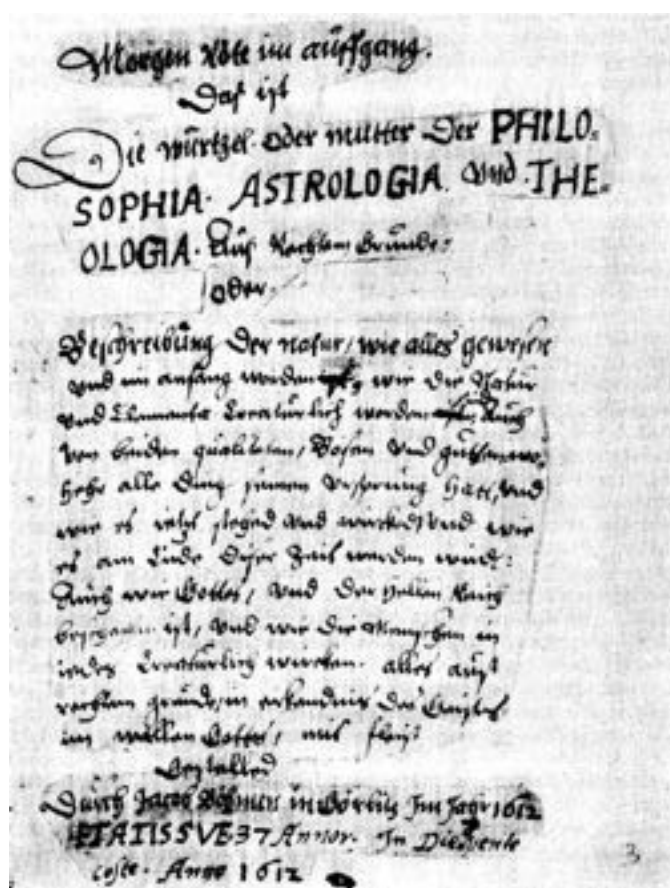 Morgen Röte im auffgang.
Das ist
Die wurtzel oder mutter Der PHILO=
SOPHIA. ASTROLOGIA. Und THE=
OLOGIA. Aus Rechtem Grunde;
oder.
Beschreibung Der natur, wie alles gewesen
und im anfang worden, wie Die Natur
und Elementa Creatürlich worden, Auch
von beiden qualiteten, Bösen und gutten, wo=
hehr alle Ding seinen Vrsprung hatt, und
wie es itzt stehed und wircked, und wie
es am Ende Dieser Zeit werden wird;
Auch wie Gottes, und Der Hellen Reich
beschaffen ist, und wie Die Menschen in
iedes Creatürlich wircken. alles aus
rechtem grunde, in erkendnis Des Geistes,
im wallen Gottes, mit fleis
Gestelled
Durch Jacob Böhmen in Görlitz Im Jahr 1612
ÆTATIS SVE 37 Annor. In Die pente
coste. Anno 1612
3